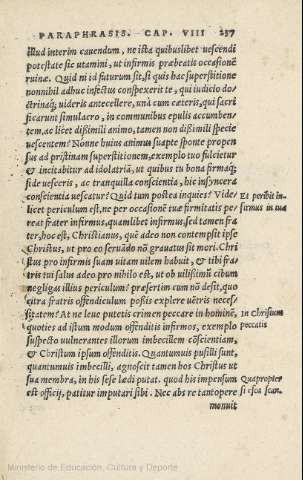 PARAPHRASIS. CAP. VIII 237
illud interim cauendum, ne ista quibuslibet uescendi
potestate sic utamini, ut infirmis præbeatis occasionẽ
ruinæ. Quid ni id futurum sit, si quis hac superstitione
nonnihil adhuc infectus conspexerit te, qui iudicio do/
ctrinaq; uideris antecellere, unà cum cæteris, qui sacri
ficarunt simulacro, in communibus epulis accumben/
tem, ac licet dißimili animo, tamen non dißimili specie
uescentem? Nonne huius animus suapte sponte propen
sus ad pristinam superstitionem, exemplo tuo fulcietur
& incitabitur ad idolatriã, ut quibus tu bona firmaq;
fide uesceris, ac tranquilla conscientia, hic insyncera
conscientia uescatur? Quid tum postea inquies? Vide/
licet periculum est, ne per occasionẽ tuæ firmitatis pe/
reat frater infirmus, quamlibet infirmus, sed tamen fra
ter, hoc est, Christianus, què adeo non contempsit ipse
Christus, ut pro eo seruãdo nõ grauatus sit mori. Chri
stus pro infirmis suam uitam uilem habuit, & tibi fra/
tris tui salus adeo pro nihilo est, ut ob uilißimũ cibum
negligas illius periculum? præsertim cum nõ desit, quo
citra fratris offendiculum poßis explere uẽtris neces/
sitatem? At ne leue putetis crimen peccare in hominẽ,
quoties ad istum modum offenditis infirmos, exemplo
suspecto uulnerantes illorum imbecillem cõscientiam,
& Christum ipsum offenditis. Quantumuis pusilli sunt,
quantumuis imbecilli, agnoscit tamen hos Christus ut
sua membra, in his sese lædi putat. quod his impensum
est officij, patitur imputari sibi. Nec abs re tantopere
monuit
Et peribit in-
firmus in tua
in Christum
peccatis
Quapropter
si esca scan.
Ministerio de Educación, Cultura y Deporte